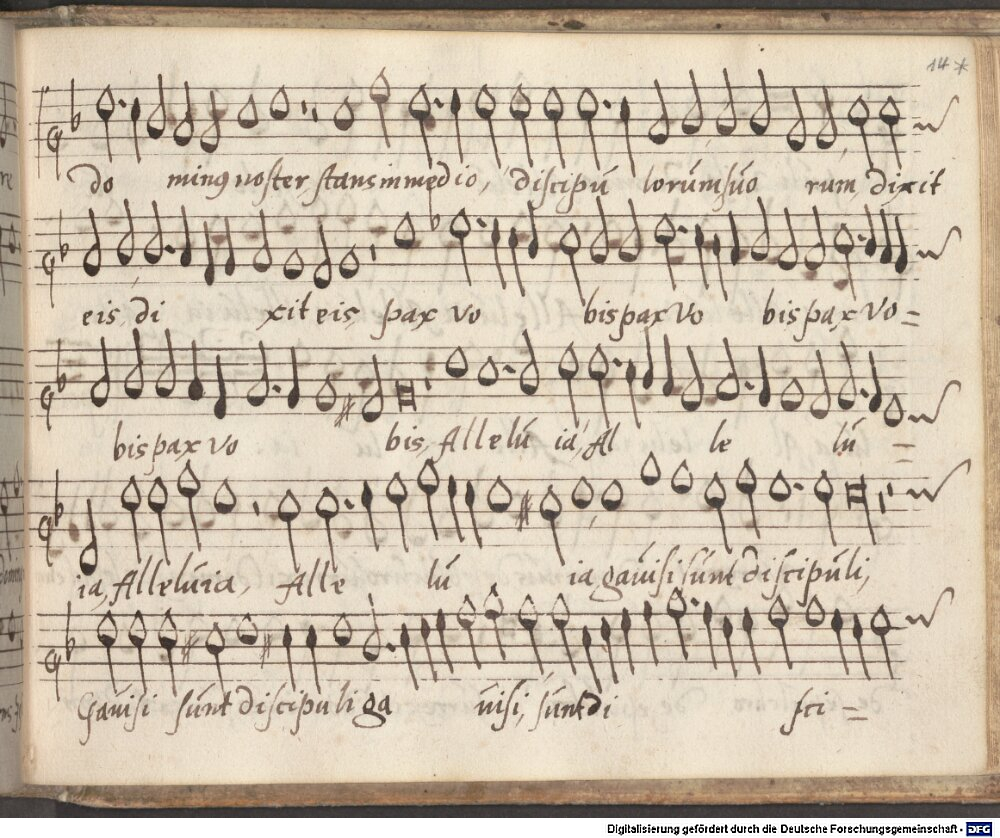 14*
do minus noster stans in medio, discipu lorum suo rum, dixit
eis, di xit eis pax vo bis pax vo bis pax vo=
bis pax vo bis, Allelu ia, Al le lu =
ia, Alleluia, Alle lu ia gauisi sunt discipuli,
Gauisi sunt discipuli ga uisi, sunt di sci =
Digitalisierung gefördert durch die Deutsche Forschungsgemeinschaft - DFG